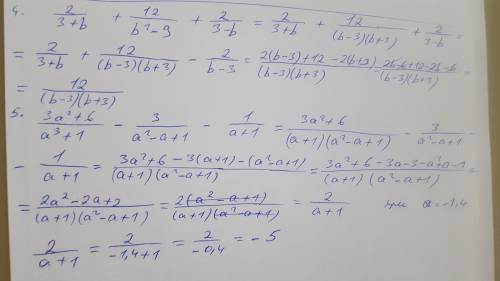 4. 2/(3+b) + 12/(b²-9) + 2/(3-b) = 2/(3+b) + 12/((b-3)(b+3)) + 2/(3-b) =
= 2/(3+b) + 12/((b-3)(b+3)) - 2/(b-3) = (2(b-3)+12-2(b+3))/((b-3)(b+3)) = (2b-6+12-2b-6)/((b-3)(b+3)) =
= 12/((b-3)(b+3))
5. (3a²+6)/(a³+1) - 3/(a²-a+1) - 1/(a+1) = (3a²+6)/((a+1)(a²-a+1)) - 3/(a²-a+1) -
- 1/(a+1) = (3a²+6-3(a+1)-(a²-a+1))/((a+1)(a²-a+1)) = (3a²+6-3a-3-a²+a-1)/((a+1)(a²-a+1)) =
= (2a²-2a+2)/((a+1)(a²-a+1)) = 2(a²-a+1)/((a+1)(a²-a+1)) = 2/(a+1) при a=-1,4
2/(a+1) = 2/(-1,4+1) = 2/(-0,4) = -5